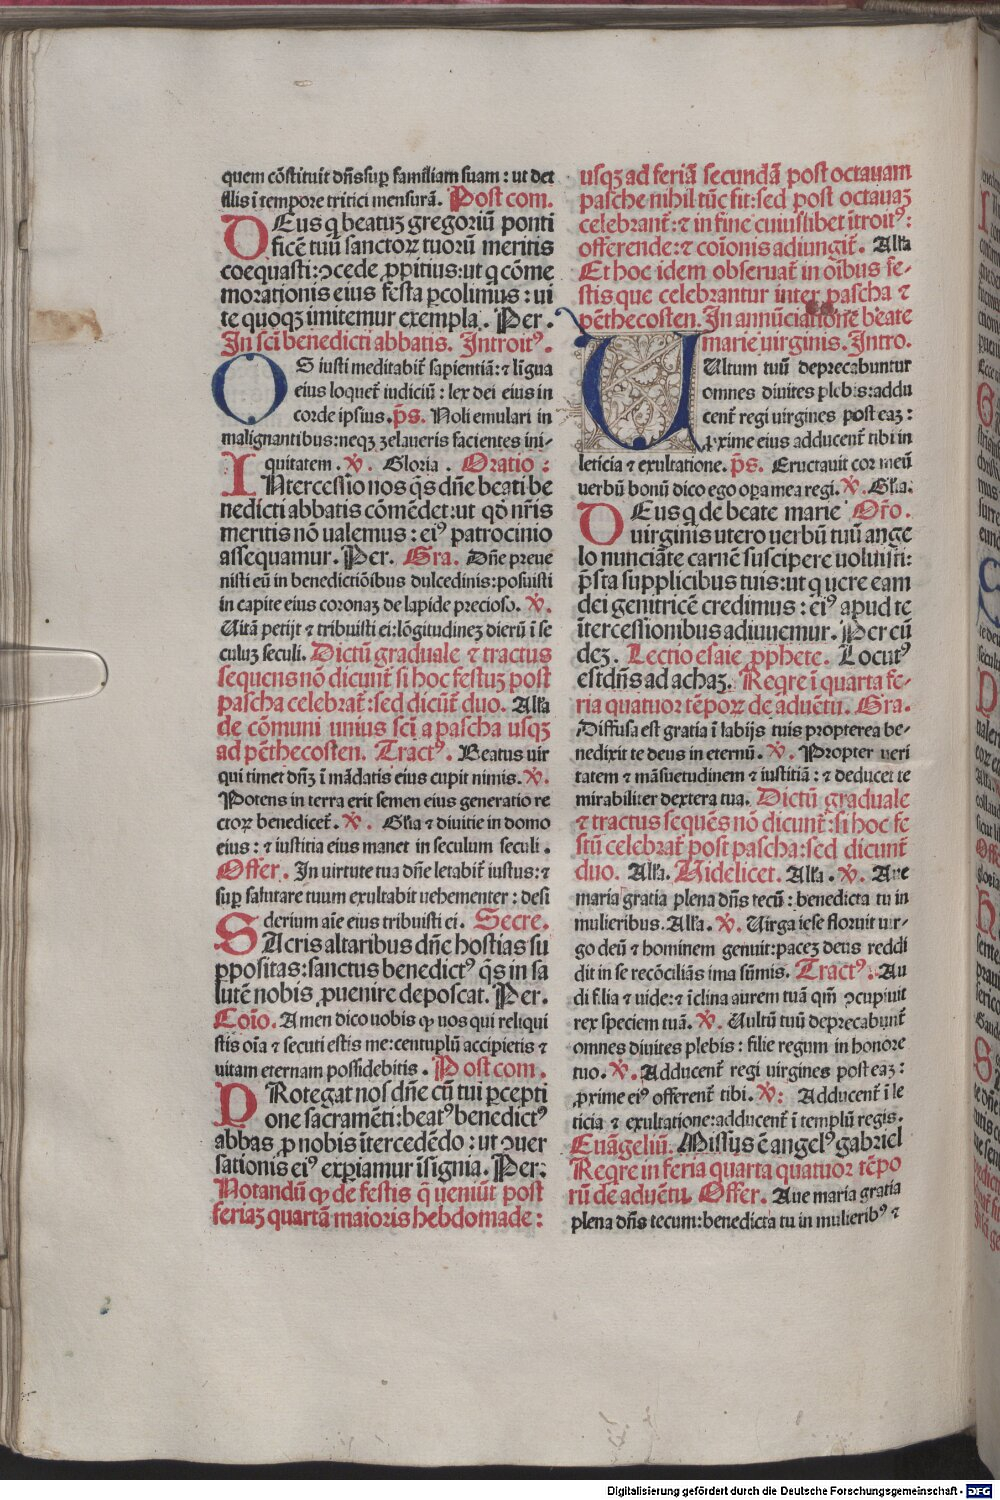 quem cōstituit dn̄s sup̲ familiam suam : ut det
illis ī tempore tritici mensurā. Post com.
DEus q̇ beatuꝫ gregoriū ponti
ficē tuū sanctoꝝ tuorū meritis
coequasti: ꝯcede ꝓpitius: ut q̇ cōme
morationis eius festa ꝑcolimus : ui
te quoqꝫ imitemur exempla. Per.
In sci̅ benedicti abbatis. Introitꝰ.
OS iusti meditabit̄ sapientiā: ⁊ līgua
eius loquet̄ iudiciū : lex dei eius in
corde ipsius. p̄s. Noli emulari in
malignantibus: neqꝫ ꝫelaueris facientes ini-
quitatem. ℣. Gloria. Oratio :
INtercessio nos q̄s dn̄e beati be
nedicti abbatis cōmēdet: ut qd̄ nr̄is
meritis nō ualemus : eiꝰ patrocinio
assequamur. Per. Gra. Dn̄e preue
nisti eū in benedictiōibus dulcedinis: posuisti
in capite eius coronaꝫ de lapide precioso. ℣.
Uitā petijt ⁊ tribuisti ei: lōgitudineꝫ dierū ī se
culuꝫ seculi. Dictū graduale ⁊ tractus
sequens nō dicunt̄ si hoc festuꝫ post
pascha celebrat̄: sed dicūt̄ duo. Alła
de cōmuni unius sci̅ a pascha usqꝫ
ad pēthecosten. Tractꝰ. Beatus uir
qui timet dn̄ꝫ ī mādatis eius cupit nimis. ℣.
Potens in terra erit semen eius generatio re
ctoꝝ benedicet̄. ℣. Głia ⁊ diuitie in domo
eius : ⁊ iustitia eius manet in seculum seculi.
Offer. In uirtute tua dn̄e letabit̄ iustus: ⁊
sup̲ salutare tuum exultabit uehementer : desi
derium aīe eius tribuisti ei. Secre.
SAcris altaribus dn̄e hostias su
ꝑpositas: sanctus benedictꝰ q̄s in sa
lutē nobis ꝓuenire deposcat. Per.
Coīo. Amen dico uobis ꝙ uos qui reliqui
stis oīa ⁊ secuti estis me: centuplū accipietis ⁊
uitam eternam possidebitis. Post com.
PRotegat nos dn̄e cū tui ꝑcepti
one sacramēti: beatꝰ benedictꝰ
abbas ꝓ nobis ītercedēdo : ut ꝯuer
sationis eiꝰ exꝑiamur īsignia. Per:
Notandū ꝙ de festis q̄ ueniūt post
feriaꝫ quartā maioris hebdomade :
usqꝫ ad feriā secundā post octauam
pasche nihil tūc fit: sed post octauaꝫ
celebrant̄: ⁊ in fine cuiuslibet ītroitꝰ:
offerende: ⁊ coīonis adiungit̄. Alła
Et hoc idem obseruat̄ in oībus fe-
stis que celebrantur inter pascha ⁊
pēthecosten. In annūciatione beate
marie uirginis. Intro.
UUltum tuū deprecabuntur
omnes diuites plebis: addu
cent̄ regi uirgines post eaꝫ :
ꝓxime eius adducent̄ tibi in
leticia ⁊ exultatione. p̄s. Eructauit cor meū
uerbū bonū dico ego oꝑa mea regi. ℣. Głia.
DEus q̇ de beate marie Or̄o.
uirginis utero uerbū tuū ange
lo nunciāte carnē suscipere uoluisti:
p̄sta supplicibus tuis: ut q̇ uere eam
dei genitricē credimus : eiꝰ apud te
ītercessionibus adiuuemur. Per eū
deꝫ. Lectio esaie ꝓphete. Locutꝰ
est dn̄s ad achaꝫ. Reqre ī quarta fe-
ria quatuor tēpoꝝ de aduētu. Gra.
Diffusa est gratia ī labijs tuis propterea be-
nedixit te deus in eternū. ℣. Propter ueri
tatem ⁊ māsuetudinem ⁊ iustitiā : ⁊ deducet te
mirabiliter dextera tua. Dictū graduale
⁊ tractus sequēs nō dicunt̄: si hoc fe
stū celebrat̄ post pascha: sed dicunt̄
duo. Alła. Uidelicet. Alła. ℣. Aue
maria gratia plena dn̄s tecū : benedicta tu in
mulieribus. Alła. ℣. Uirga iese floruit uir-
go deū ⁊ hominem genuit: paceꝫ deus reddi
dit in se recōciliās ima sūmis. Tractꝰ. Au
di filia ⁊ uide: ⁊ īclina aurem tuā qm̄ ꝯcupiuit
rex speciem tuā. ℣. Uultū tuū deprecabunt̄
omnes diuites plebis : filie regum in honore
tuo. ℣. Adducent̄ regi uirgines post eaꝫ :
ꝓxime eiꝰ offerent̄ tibi. ℣: Adducent̄ ī le
ticia ⁊ exultatione: adducent̄ ī templū regis.
Euāgeliū. Missus ē angelꝰ gabriel
Reqre in feria quarta quatuoꝛ tēpo
rū de aduētu. Offer. Aue maria gratia
plena dn̄s tecum: benedicta tu in mulieribꝰ ⁊
Digitalisierung gefördert durch die Deutsche Forschungsgemeinschaft - DFG